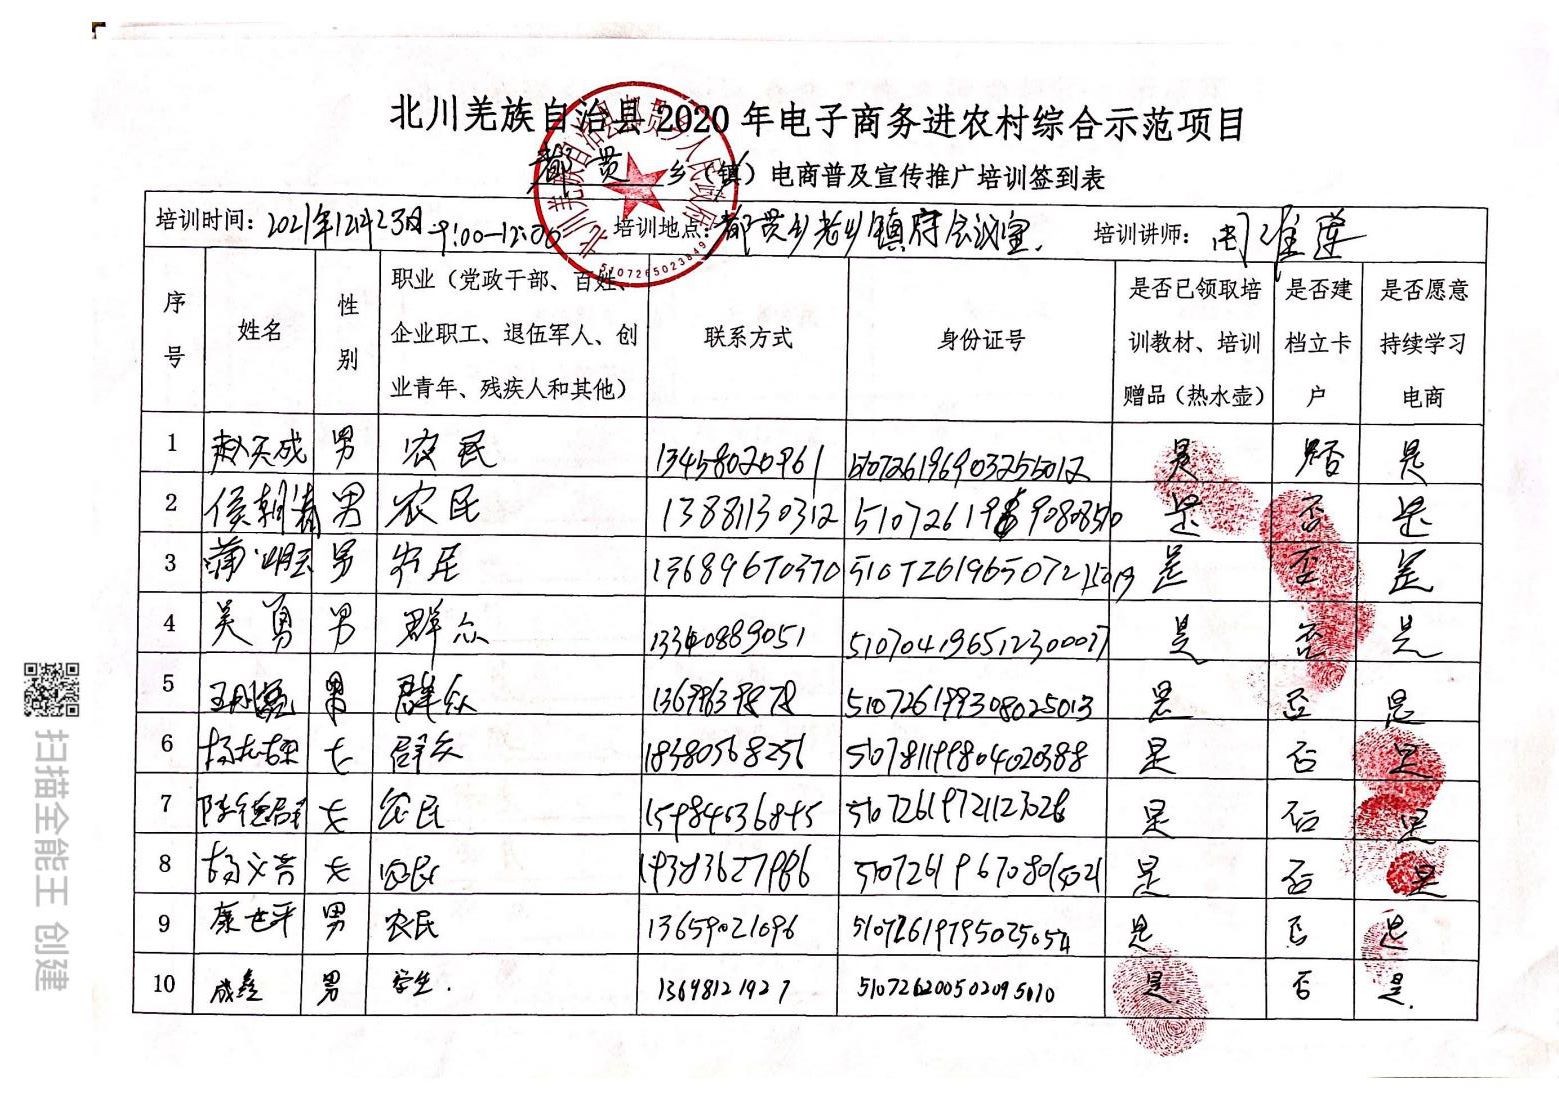 北川羌族自治县2020年电子商务进农村综合示范项目
都贯 乡（镇）电商普及宣传推广培训签到表
培训时间：2021年12月23日 9:00-12:00 培训地点：都贯乡老乡镇府会议室. 培训讲师：
序号 姓名 性别 职业（党政干部、百姓、企业职工、退伍军人、创业青年、残疾人和其他） 联系方式 身份证号 是否已领取培训教材、培训赠品（热水壶） 是否建档立卡户 是否愿意持续学习电商
1 赵天成 男 农民 13458020961 510726196903255012 是 否 是
2 侯朝清 男 农民 13881130312 是 否 是
3 男 农民 13689670370 是 否 是
4 吴勇 男 群众 13340889051 510704196512300017 是 否 是
5 男 群众 510726199308025013 是 否 是
6 女 群众 18380568256 510781199804020388 是 否 是
7 女 农民 是 否 是
8 杨文芳 女 农民 是 否 是
9 康世平 男 农民 13659021096 是 否 是
10 成鑫 男 学生. 13698121927 510726200502095010 是. 否 是.
北川羌族自治县都贯乡人民政府
5107265023849
扫描全能王 创建